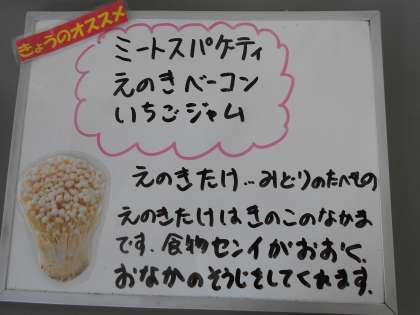 きょうのオススメ
ミートスパゲーティ
えのきベーコン
いちごジャム
えのきたけ…みどりのたべもの
えのきたけはきのこのなかま
です。食物センイがおおく、
おなかのそうじをしてくれます。